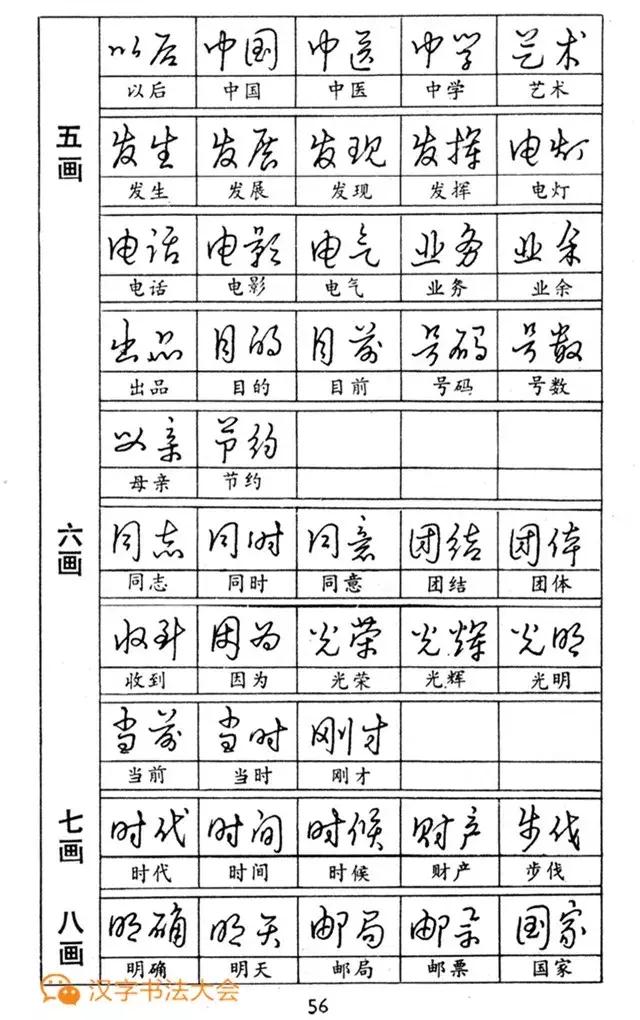 以后 中国 中医 中学 艺术
以后 中国 中医 中学 艺术
五画
发生 发展 发现 发挥 电灯
发生 发展 发现 发挥 电灯
电话 电影 电气 业务 业余
电话 电影 电气 业务 业余
出品 目的 目前 号码 号数
出品 目的 目前 号码 号数
母亲 节约
母亲 节约
六画
同志 同时 同意 团结 团体
同志 同时 同意 团结 团体
收到 因为 光荣 光辉 光明
收到 因为 光荣 光辉 光明
当前 当时 刚才
当前 当时 刚才
七画
时代 时间 时候 财产 步伐
时代 时间 时候 财产 步伐
八画
明确 明天 邮局 邮票 国家
明确 明天 邮局 邮票 国家
汉字书法大会
56